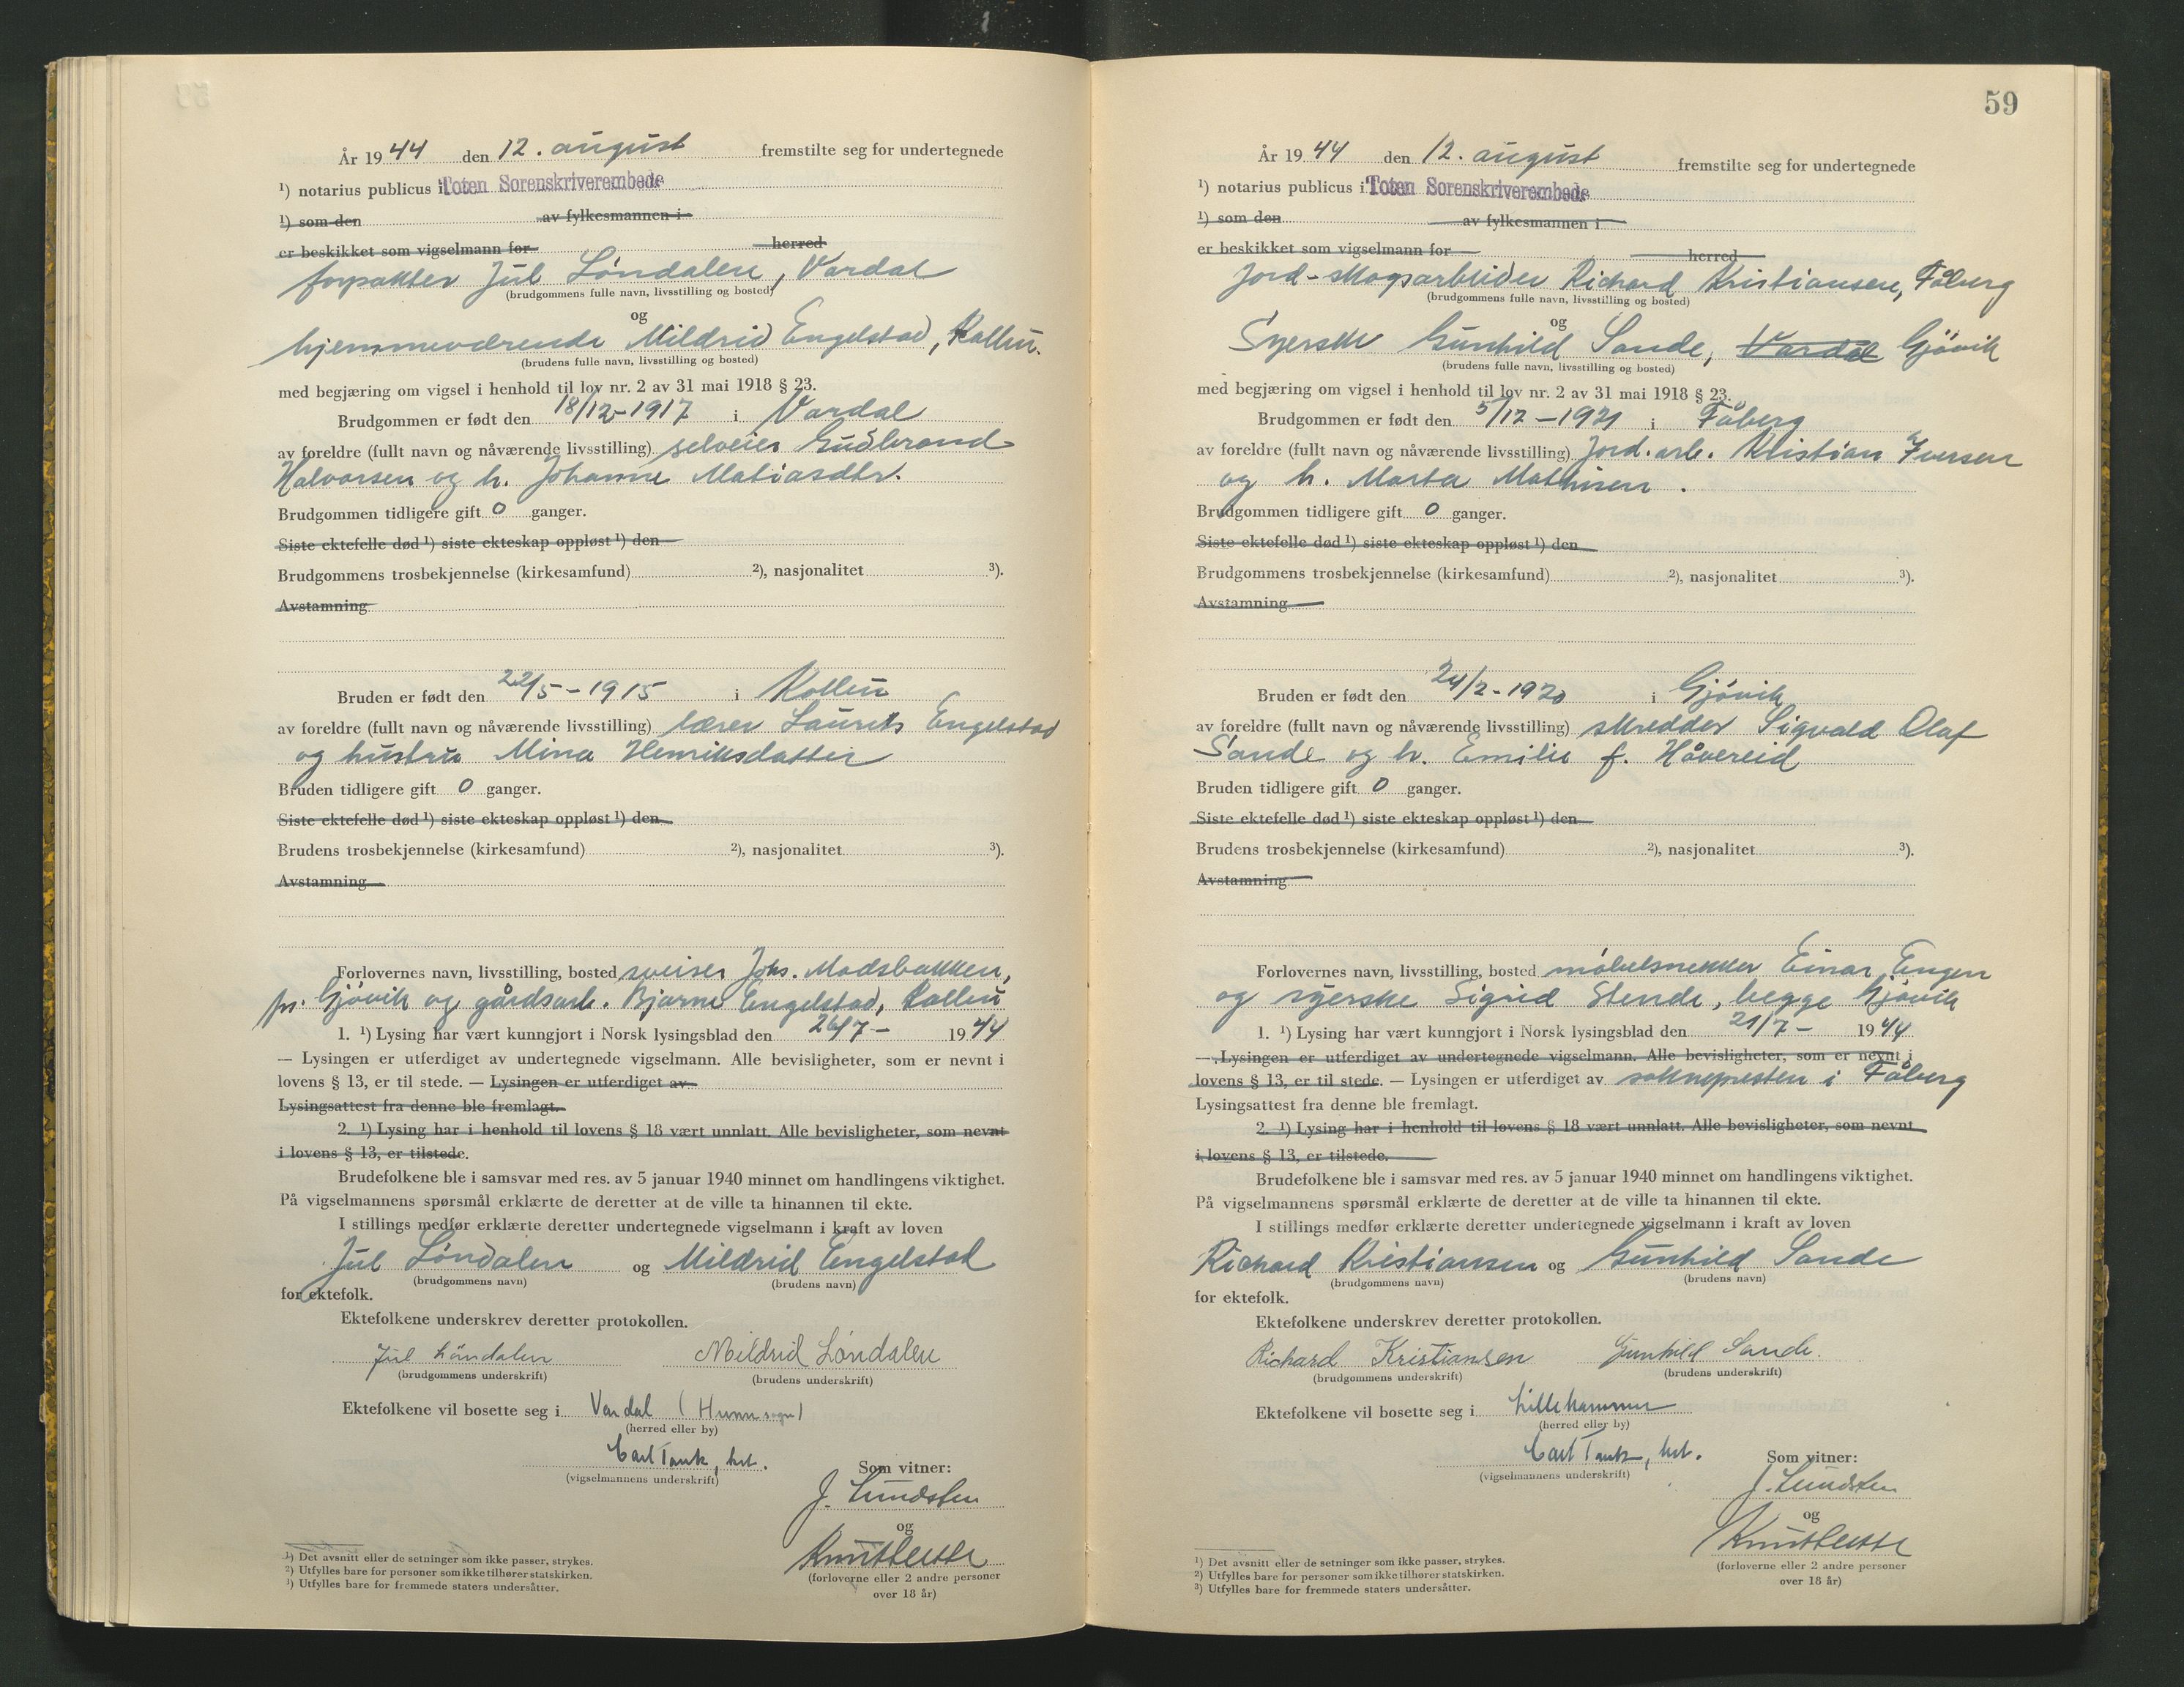 År 19 44 den 12. august fremstilte seg for undertegnede
¹) notarius publicus i Toten Sorenskriverembede
¹) som den av fylkesmannen i
er beskikket som vigselmann for herred
forpakter Jul Løndalen, Vardal
(brudgommens fulle navn, livsstilling og bosted)
og
hjemmeværende Mildrid Engelstad, Kolbu.
(brudens fulle navn, livsstilling og bosted)
med begjæring om vigsel i henhold til lov nr. 2 av 31 mai 1918 § 23.
Brudgommen er født den 18/12-1917 i Vardal
av foreldre (fullt navn og nåværende livsstilling) selveier Gudbrand
Halvorsen og h. Johanne Matiasdtr.
Brudgommen tidligere gift 0 ganger.
Siste ektefelle død ¹) siste ekteskap oppløst ¹) den
Brudgommens trosbekjennelse (kirkesamfund) ²), nasjonalitet ³).
Avstamning
Bruden er født den 22/5-1915 i Kolbu
av foreldre (fullt navn og nåværende livsstilling) lærer Laurits Engelstad
og hustru Mina Henriksdatter
Bruden tidligere gift 0 ganger.
Siste ektefelle død ¹) siste ekteskap oppløst ¹) den
Brudens trosbekjennelse (kirkesamfund) ²), nasjonalitet ³).
Avstamning
Forlovernes navn, livsstilling, bosted sveiser Johs. Madsbakken,
pr. Gjøvik og gårdsarb. Bjarne Engelstad, Kolbu
1. ¹) Lysing har vært kunngjort i Norsk lysingsblad den 26/7- 19 44
— Lysingen er utferdiget av undertegnede vigselmann. Alle bevisligheter, som er nevnt i
lovens § 13, er til stede. — Lysingen er utferdiget av
Lysingsattest fra denne ble fremlagt.
2. ¹) Lysing har i henhold til lovens § 18 vært unnlatt. Alle bevisligheter, som nevnt
i lovens § 13, er tilstede.
Brudefolkene ble i samsvar med res. av 5 januar 1940 minnet om handlingens viktighet.
På vigselmannens spørsmål erklærte de deretter at de ville ta hinannen til ekte.
I stillings medfør erklærte deretter undertegnede vigselmann i kraft av loven
Jul Løndalen og Mildrid Engelstad
(brudgommens navn) (brudens navn)
for ektefolk.
Ektefolkene underskrev deretter protokollen.
Jul Löndalen Mildrid Løndalen
(brudgommens underskrift) (brudens underskrift)
Ektefolkene vil bosette seg i Vardal (Hunn sogn)
(herred eller by)
Carl Tank, hst.
(vigselmannens underskrift)
Som vitner:
J. Lundsten
og
(forloverne eller 2 andre personer
over 18 år)
¹) Det avsnitt eller de setninger som ikke passer, strykes.
²) Utfylles bare for personer som ikke tilhører statskirken.
³) Utfylles bare for fremmede staters undersåtter.
59
År 19 44 den 12. august fremstilte seg for undertegnede
¹) notarius publicus i Toten Sorenskriverembede
¹) som den av fylkesmannen i
er beskikket som vigselmann for herred
Jord-skogsarbeider Richard Kristiansen, Fåberg
(brudgommens fulle navn, livsstilling og bosted)
og
Syerske Gunhild Sande, Vardal Gjøvik
(brudens fulle navn, livsstilling og bosted)
med begjæring om vigsel i henhold til lov nr. 2 av 31 mai 1918 § 23.
Brudgommen er født den 5/12-1921 i Fåberg
av foreldre (fullt navn og nåværende livsstilling) Jord. arb. Kristian Iversen
og h. Marta Mathisen.
Brudgommen tidligere gift 0 ganger.
Siste ektefelle død ¹) siste ekteskap oppløst ¹) den
Brudgommens trosbekjennelse (kirkesamfund) ²), nasjonalitet ³).
Avstamning
Bruden er født den 24/2-1920 i Gjøvik
av foreldre (fullt navn og nåværende livsstilling) skredder Sigvald Olaf
Sande og h. Emilie f. Håvereid
Bruden tidligere gift 0 ganger.
Siste ektefelle død ¹) siste ekteskap oppløst ¹) den
Brudens trosbekjennelse (kirkesamfund) ²), nasjonalitet ³).
Avstamning
Forlovernes navn, livsstilling, bosted møbelsnekker Einar Engen
og syerske Sigrid Stende, begge Gjøvik
1. ¹) Lysing har vært kunngjort i Norsk lysingsblad den 21/7- 19 44
— Lysingen er utferdiget av undertegnede vigselmann. Alle bevisligheter, som er nevnt i
lovens § 13, er til stede. — Lysingen er utferdiget av soknepresten i Fåberg
Lysingsattest fra denne ble fremlagt.
2. ¹) Lysing har i henhold til lovens § 18 vært unnlatt. Alle bevisligheter, som nevnt
i lovens § 13, er tilstede.
Brudefolkene ble i samsvar med res. av 5 januar 1940 minnet om handlingens viktighet.
På vigselmannens spørsmål erklærte de deretter at de ville ta hinannen til ekte.
I stillings medfør erklærte deretter undertegnede vigselmann i kraft av loven
Richard Kristiansen og Gunhild Sande
(brudgommens navn) (brudens navn)
for ektefolk.
Ektefolkene underskrev deretter protokollen.
Richard Kristiansen Gunhild Sande.
(brudgommens underskrift) (brudens underskrift)
Ektefolkene vil bosette seg i Lillehammer
(herred eller by)
Carl Tank, hst.
(vigselmannens underskrift)
Som vitner:
J. Lundsten
og
(forloverne eller 2 andre personer
over 18 år)
¹) Det avsnitt eller de setninger som ikke passer, strykes.
²) Utfylles bare for personer som ikke tilhører statskirken.
³) Utfylles bare for fremmede staters undersåtter.